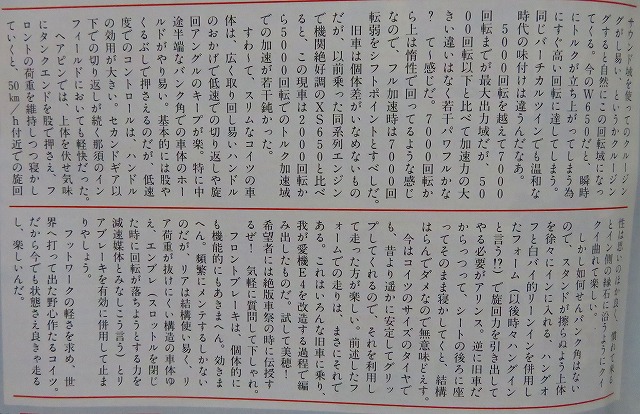 サウンド域を使ってのクルージン
グがし易いというかクルージン
グすると自然にこの回転域になっ
てくる。今のW650だと、瞬時
にトルクが立ち上がってしまう為
にすぐ高い回転に達してしまう。
同じバーチカルツインでも温和な
時代の味付けは違うんだなあ。
5000回転を越えて7000
回転までが最大出力域だが、50
00回転以下と比べて加速力の大
きい違いはなく若干パワフルかな
？て感じだ。7000回転か
ら上は惰性で回ってるような感じ
なので、フル加速時は7000回
転弱をシフトポイントとすべしだ。
旧車は個体差がいなめないもの
だが、以前乗った同系列エンジン
で機関絶好調のXS650と比べ
ると、この現車は2000回転か
ら5000回転でのトルク加速域
での加速が若干鈍かった。
すわ〜て、スリムなコイツの車
体は、広く取り回し易いハンドル
のおかげで低速での切り返しや旋
回アングルのキープが楽。特に中
途半端なバンク角での車体のホー
ルドがやり易い。基本的には股や
くるぶしで押さえるのだが、低速
度でのコントロールは、ハンドル
の効用が大きい。セカンドギア以
下での切り返しが続く那須のイン
フィールドにおいても軽快だった。
ヘアピンでは、上体を伏せ気味
にタンクエンドを股で押さえ、フ
ロントの荷重を維持しつつ寝かし
ていくと、50㎞/h付近での旋回
性は思いのほかよく、慣れて来る
とイン側の縁石に沿うようにクイ
クイ曲れて楽しい。
しかし如何せんバンク角はない
ので、スタンドが擦らぬよう上体
を徐々にインに入れる、ハングオ
フと白バイ的リーンインを併用し
たフォーム（以後時々ハングイン
と言う!?）で旋回力を引き出して
やる必要がアリンス。逆に旧車だ
からっつって、シートの後ろに座
ってそのまま寝かしてくと、結構
はらんでダメなので無意味どえす。
今はコイツのサイズのタイヤで
も、昔より遥かに安定してグリッ
プしてくれるので、それを利用し
て走った方が楽しい。前述したフ
ォームでの走りは、まさにそれで
ある。これはいろんな旧車に乗り、
我が愛機E4を改造する過程で編
み出したものだ。試して美穂！
希望者には絶版車祭の時に伝授す
るぜ！　気軽に質問して下しゃれ。
フロントブレーキは、個体的に
も機能的にもあきまへん。効きま
へん。頻繁にメンテするしかない
のだが、リアは結構使い易く、リ
ア荷重が抜けにくい構造の車体ゆ
え、エンブレ（スロットルを閉じ
た時に回転が落ちようとする力を
減速媒体とみなしこう言う）とリ
アブレーキを有効に併用して止ま
りやしょう。
フットワークの軽さを求め、世
界へ打って出た野心作たるコイツ。
だから今でも状態さえ良きゃ走る
し、楽しいんだ。